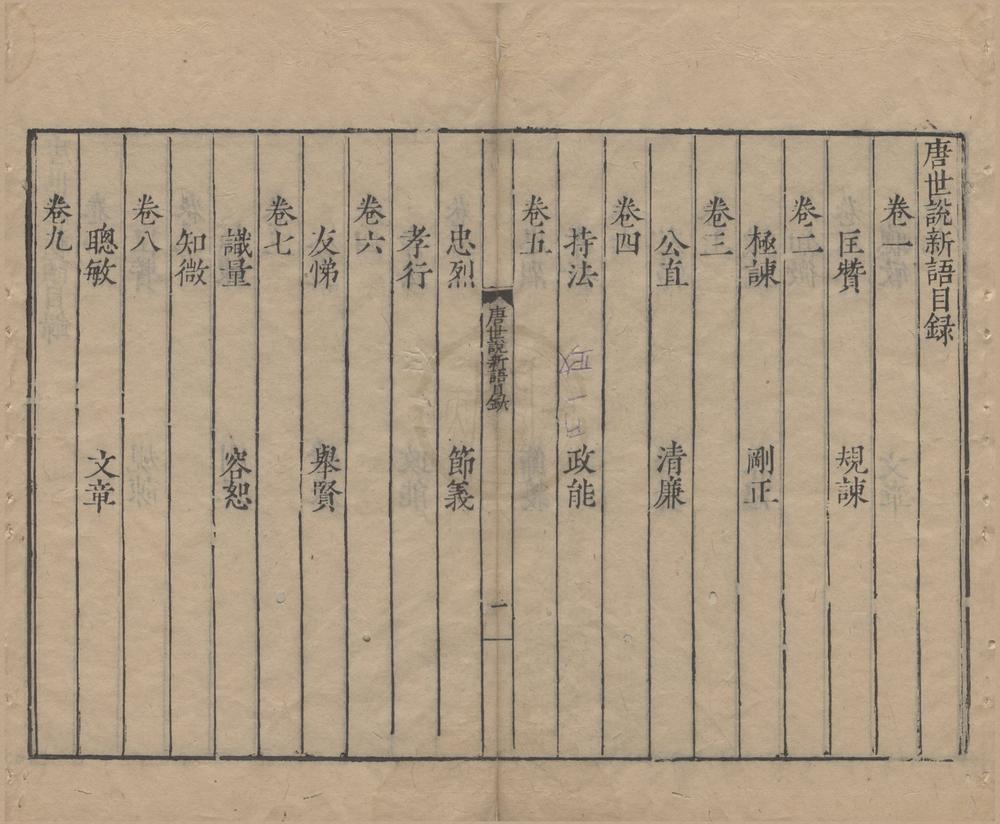 唐世說新語目録
卷一
匡贊　規諫
卷二
極諫　剛正
卷三
公直　清廉
卷四
持法　政能
卷五
唐世說新語目錄　一
忠烈　節義
孝行
卷六
友悌　舉賢
卷七
識量　容恕
知微
卷八
聰敏　文章
卷九